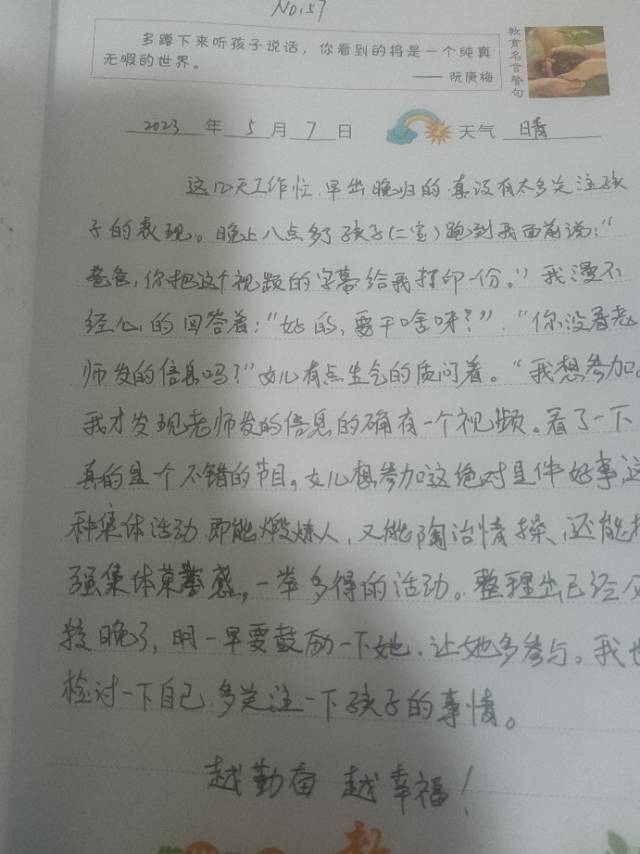 No.57
多蹲下来听孩子说话，你看到的将是一个纯真
无暇的世界。
—— 阮庚梅
教育名言警句
2023 年 5 月 7 日 天气 晴
这几天工作忙，早出晚归的，真没有太多关注孩
子的表现。晚上八点多了孩子(二宝)跑到我面前说："
爸爸，你把这个视频的字幕给我打印一份。"我漫不
经心的回答着："好的，要干啥呀？"."你没看老
师发的信息吗？"女儿有点生气的质问着。"我想参加。
我才发现老师发的信息的确有一个视频。看了一下
真的是个不错的节目。女儿想参加这绝对是件好事，这
种集体活动，即能煅炼人，又能陶冶情操、还能
强集体荣 感，一举多得的活动。整理出已经
较晚了，明一早要鼓励一下她，让她多参与。我也
检讨一下自己，多关注一下孩子的事情。
越勤奋 越幸福！